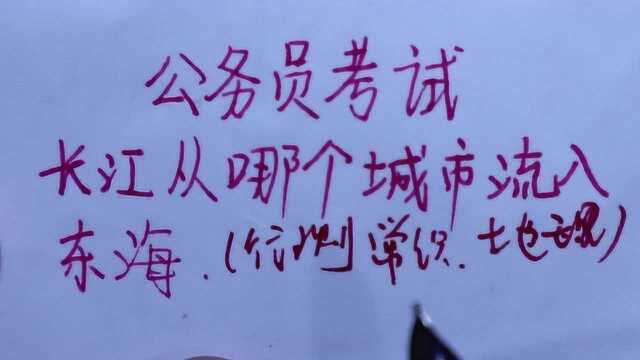 公务员考试
长江从哪个城市流入
东海.(行测常识.地理)